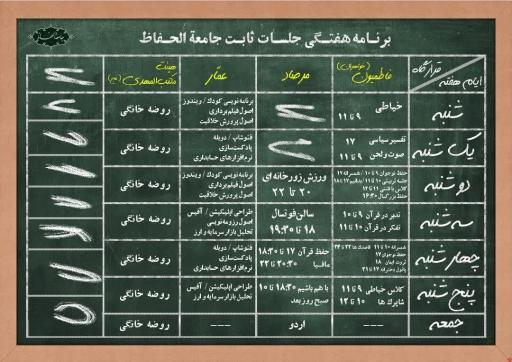 برنامه هفتگی جلسات ثابت جامعة الحفاظ
قرارگاه
ایام هفته
فاطمیون (خواهران)
مرصاد
عمّار
هیئت
مکتب المهدی (عج)
شنبه
خیاطی
۹ تا ۱۱
برنامه نویسی کودک / ویندوز
اصول فیلم برداری
اصول پرورش خلاقیت
روضه خانگی
یک شنبه
تفسیر سیاسی ۱۷
صوت و لحن ۹ تا ۱۱
فتوشاپ / دوبله
پادکست سازی
نرم افزارهای حسابداری
روضه خانگی
دو شنبه
حفظ بزرگسال ۱۶:۳۰
ورزش زورخانه ای
۲۰ تا ۲۲
برنامه نویسی کودک / ویندوز
اصول فیلم برداری
اصول پرورش خلاقیت
روضه خانگی
سه شنبه
تدبر در قرآن ۹ تا ۱۰
تفکر در قرآن ۱۰ تا ۱۱
سالن فوتسال
۱۸ تا ۱۹:۳۰
طراحی اپلیکیشن / آفیس
اصول رزومه نویسی
تحلیل بازار سرمایه و ارز
روضه خانگی
چهار شنبه
حفظ نوجوان ۱۷
حفظ قرآن ۱۷ تا ۱۸:۳۰
مافیا ۲۰:۳۰ تا ۲۲
فتوشاپ / دوبله
پادکست سازی
نرم افزارهای حسابداری
روضه خانگی
پنج شنبه
کلاس خیاطی ۹ تا ۱۱
شاپرک ها ۱۰ تا ۱۲
با هم باشیم ۱۸:۳۰ تا ۱۰
صبح روز بعد
طراحی اپلیکیشن / آفیس
تحلیل بازار سرمایه و ارز
روضه خانگی
جمعه
---
اردو
---
روضه خانگی